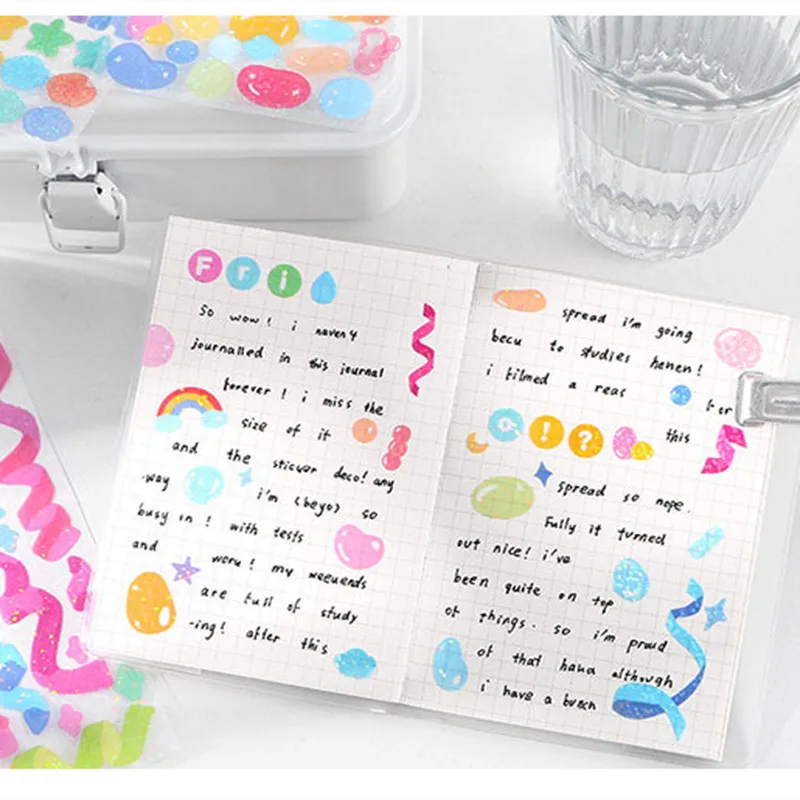 Fri
so wow! i naven4
journalled in this journal
forever! i miss the
size of it
and the sticuer deco! any
-way i'm (beyo) so
busy in! with tests
and woru! my weeuends
are full of study
-ing! after this
spread i'm going
becu to studies henen!
i filmed a reas for
a!? this
spread so nope.
Fully it turned
out nice! i've
been quite on top
of things. so i'm proud
of that hana although
i have a bunch